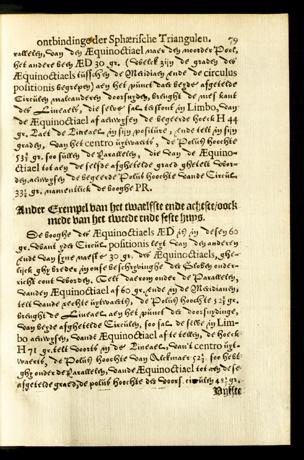 ontbindinge der Sphærische Triangulen. 79
rallelen, van den Æquinoctiael naer den noorder Pool,
het ander been ÆD 30 gr. (welck zijn de graden des
Æquinoctiaels tusschen de Meridiaen ende de circulus
positionis begrepen) aen het punct daer beyde afghetelde
Circulen malcanderen doorsnyden, brenght de
des Lineaels, die selve sal in Limbo, van
de Æquinoctiael af aenwysen de begeerde hoeck H 44
gr. Laet de Lineael in sijn posituere, ende telt in sijn
graden, van het centro uytwaerts, de Polus hoochte
52½ gr. soo sullen de Parallelen, die van de Æquinoctiael
tot aen de selfde afghetelde graed ghetelt
den, aenwysen de begeerde Polus hoochte vande Circul
33¾ gr. namentlick de booghe PR.
Ander Exempel van het twaelfste ende achtste/oock
mede van het tweede ende seste huys.
De booghe des Æquinoctiaels ÆD is in desen 60
gr. want yder Circul positionis legt van den anderen
ende van syne naeste 30 gr. des Æquinoctiaels, ghelijck
ghy breeder in onse beschryvinghe der Globen onderricht
sult worden, Telt daerom onder de Parallelen,
vanden Æquinoctiael af 60 gr. ende in de Meridianen,
telt vande rechte uytwaerts, de Polus hoochte 52½ gr.
brenght de Lineael aen het punct der doorsnydinge,
van beyde afghetelde Circulen, soo sal de selve in Limbo
aenwysen, vande Æquinoctiael af te tellen, de hoeck
H 71 gr. telt voorts in de Lineael, van't centro uytwaerts,
de Polus hoochte van Alckmaer 52½. soo hebt
ghy onder de Parallelen, vande Æquinoctiael tot aen de
afgetelde graed, de polus hoochte des voors. circulen 43½ gr.
Vijfste